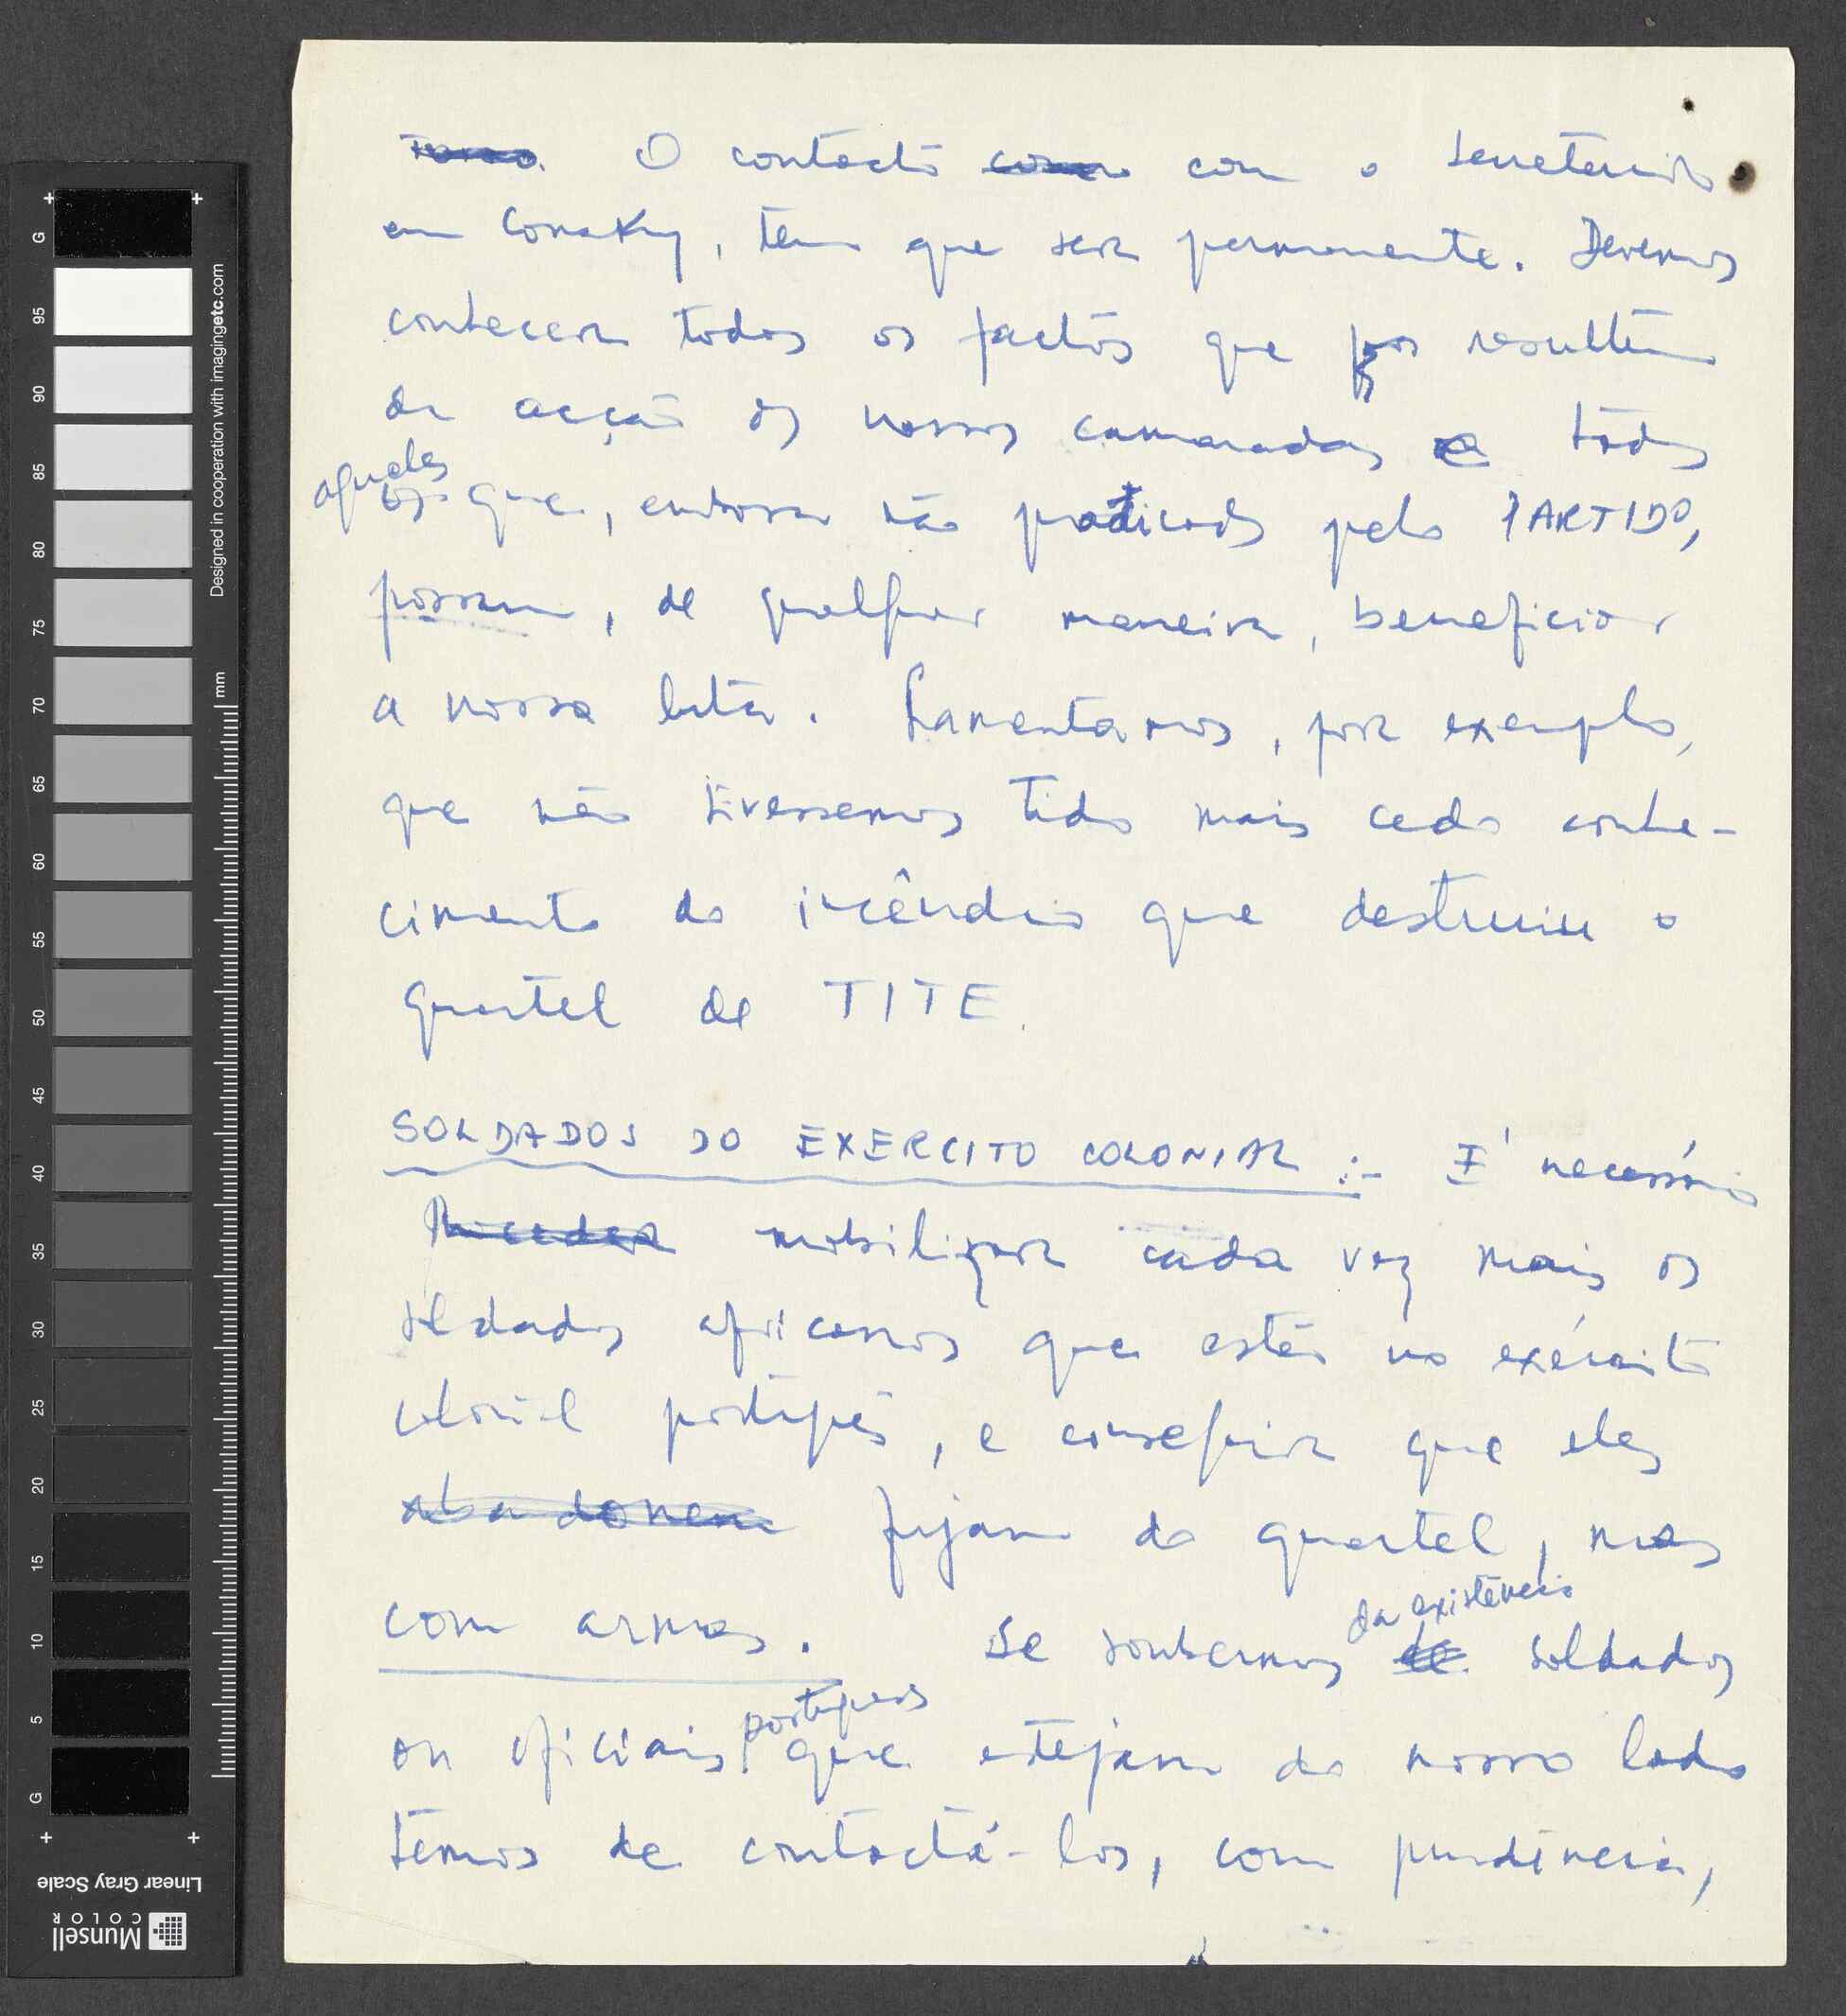 O contacto com o secretariado
em Conakry, tem que ser permanente. Devemos
conhecer todos os factos que resultem
da acção dos nossos camaradas e todos
aqueles que, embora não praticados pelo PARTIDO,
possam, de qualquer maneira, beneficiar
a nossa luta. Lamentamos, por exemplo,
que não tivessemos tido mais cedo conhe-
cimento do incêndio que destruiu o
quartel de TITE.
SOLDADOS DO EXERCITO COLONIAL :- É necessário
mobilizar cada vez mais os
soldados africanos que estão no exército
colonial português, e conseguir que eles
abandonem fujam do quartel, mas
com armas. Se soubermos da existência de soldados
ou oficiais portugueses que estejam do nosso lado
temos de contactá-los, com prudência,
Designed in cooperation with imagingetc.com
mm
G
95
90
85
80
75
70
65
60
55
50
45
40
35
30
25
20
15
10
5
G
Linear Gray Scale
Munsell
COLOR